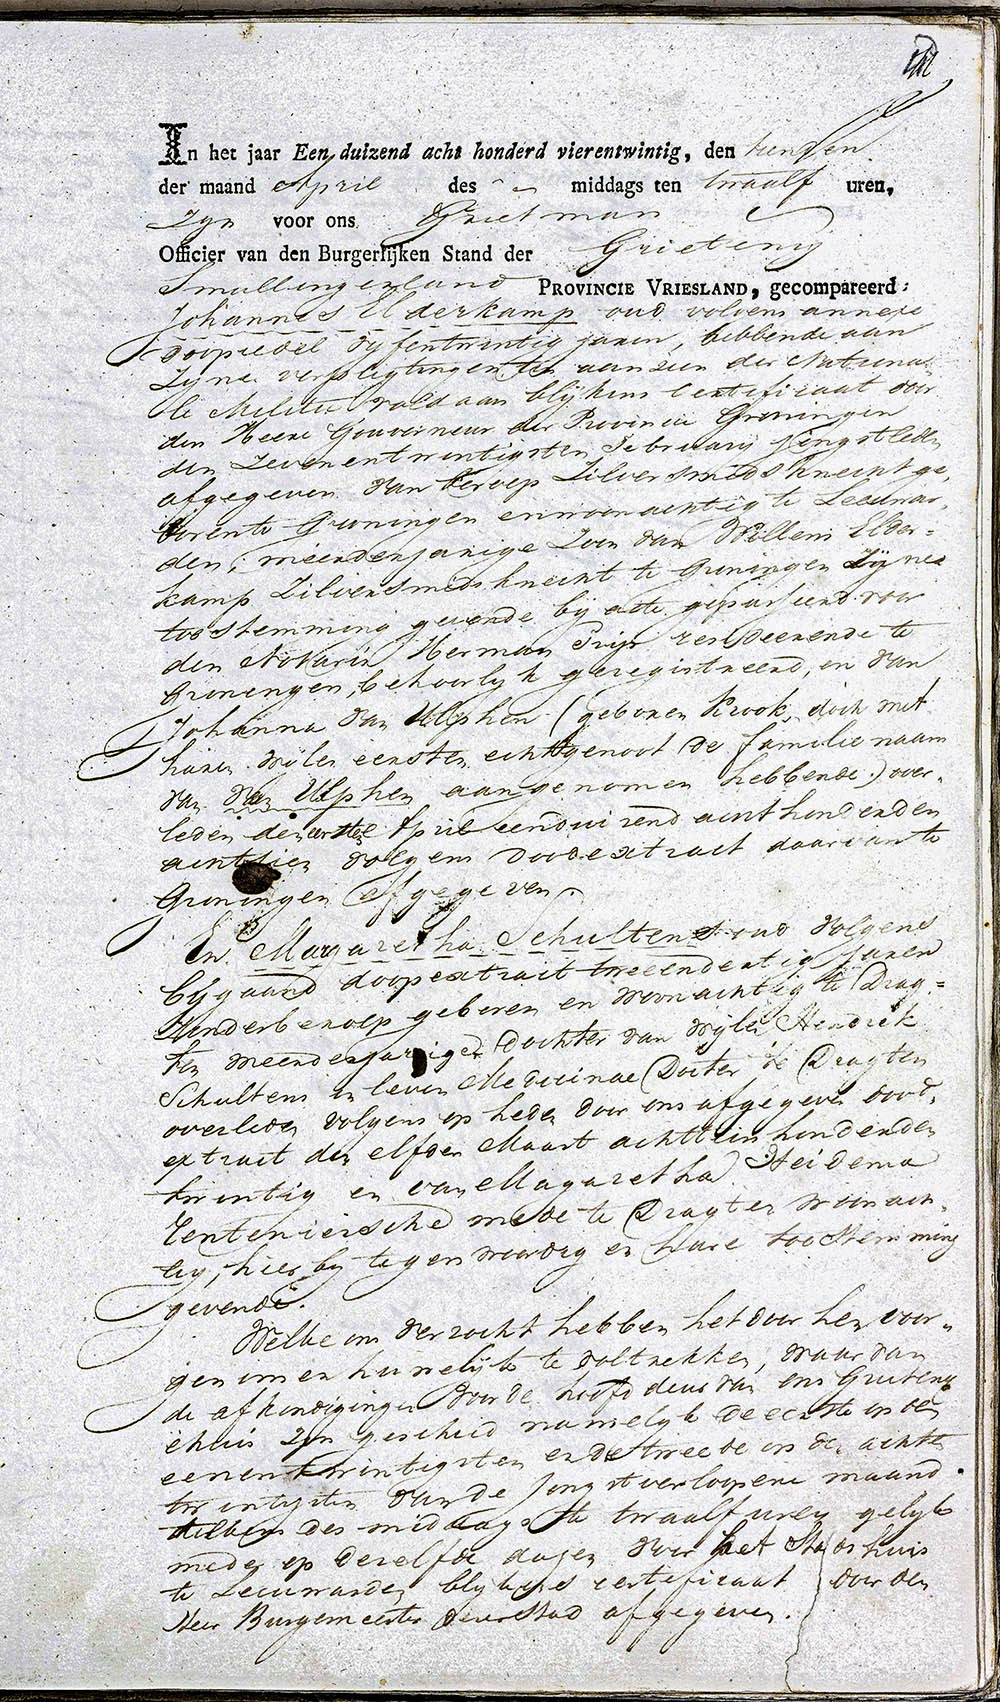 In het jaar Een duizend acht honderd vierentwintig, den
der maand April des middags ten twaalf uren,
Zyn voor ons Grietman
Officier van den Burgerlijken Stand der Grieteny
Smallingerland PROVINCIE VRIESLAND, gecompareerd:
Johannes Elderkamp oud volgens annexe
doopcedel vyfentwintig jaren, hebbende aan
Zyne verpligtingen ten aanzien der Nationa-
le Militie voldaan blykens certificaat door
den Heere Gouverneur der Provincie Groningen
den Zevenentwintigsten February jongstleden
afgegeven van beroep Zilversmidsknecht ge-
boren te Groningen en woonachtig te Leeuwar-
den, meerderjarige Zoon van Willem Elder-
kamp Zilversmidsknecht te Groningen Zijne
toestemming gevende bij acte gepasseerd voor
den Notaris Herman residerende te
Groningen, behoorlyk geregistreerd, en van
Johanna van Ulphen (geboren Krook, doch met
haren wylen eersten echtgenoot de familie naam
van van Ulphen aangenomen hebbende) over-
leden den eersten April eenduizend acht honderd en
achttien volgens doodextract daarvan te
Groningen afgegeven
En Magaretha Schultens oud volgens
bygaand doopextract tweeendertig jaren
Zonder beroep geboren en woonachtig te Drag-
ten meerderjarige Dochter van wylen Hendrik
Schultens in leven Medicinae Docter te Dragten
overleden volgens op heden door ons afgegeven dood-
extract den elfden Maart achttienhonderden
twintig en van Magaretha Heidema
Renteniersche mede te Dragten woonach-
tig, hier by tegenwoordig en Hare toestemming
gevende.
Welke ons verzocht hebben het door hen voor-
genomen huwelyk te voltrekken, waarvan
de afkondigingen voor de hoofddeur van ons Grieteny-
huis Zyn geschied namelyk de eerste op den
eenentwintigsten en de tweede op den achten
twintigsten van de jongstverloopene maand
des middags te twaalf uren gelyk
mede op dezelfde dagen voor het Stadshuis
te Leeuwarden blykens certificaat door den
Heer Burgemeester dier Stad afgegeven.